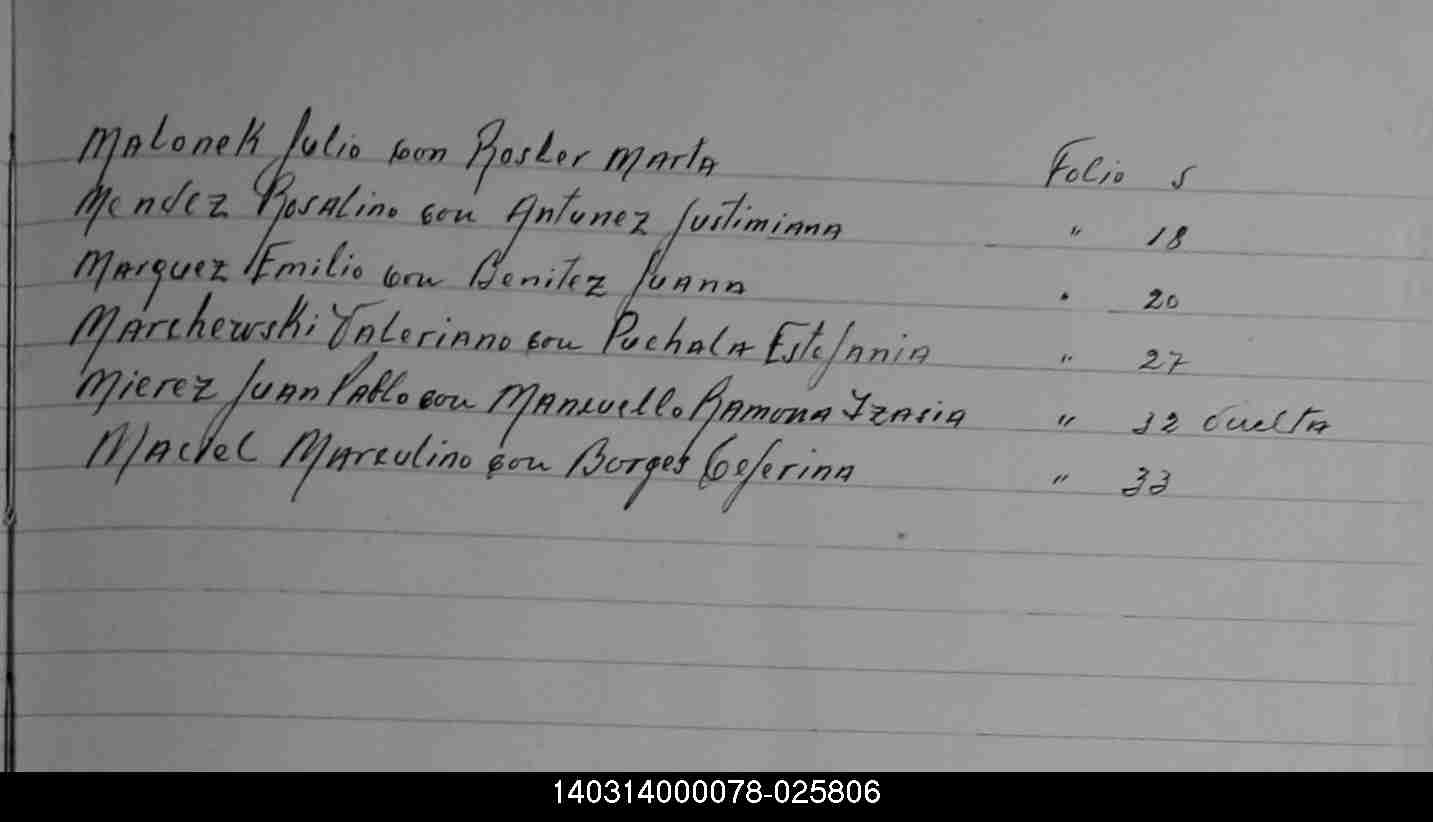 Malonek Julio con Rosler Marta Folio 5
Mendez Rosalino con Antunez Justimiana " 18
Marquez Emilio con Benitez Juana " 20
Marchewski Valeriano con Puchala Estefania " 27
Mierez Juan Pablo con Ramona Izasia " 32 Vuelta
Maciel Marculino con Borges Ceferina " 33
140314000078-025806